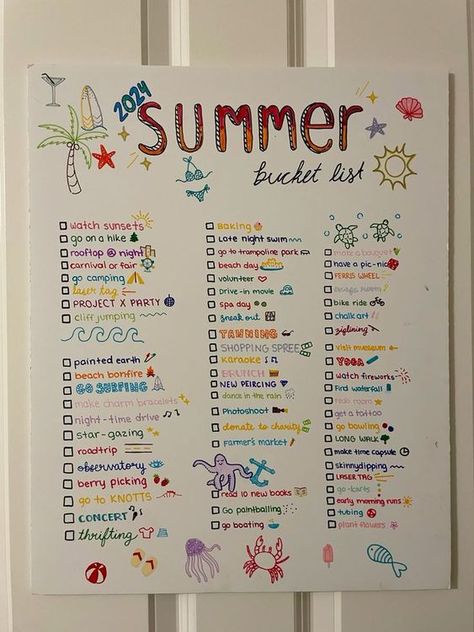 2024
Summer
bucket list
watch sunsets
go on a hike
rooftop @ night
carnival or fair
go camping
laser tag
PROJECT X PARTY
cliff jumping
painted earth
beach bonfire
GO SURFING
make charm bracelets
night-time drive
star-gazing
roadtrip
observatory
berry picking
go to KNOTTS
CONCERT
thrifting
BAKING
Late night swim
go to trampoline park
beach day
volunteer
Drive-in movie
spa day
sneak out
TANNING
SHOPPING SPREE
karaoke
BRUNCH
NEW PEIRCING
dance in the rain
Photoshoot
donate to charity
farmer's market
read 10 new books
Go paintballing
go boating
make a bouquet
have a pic-nic
FERRIS WHEEL
escape room
bike ride
chalk art
ziplining
visit museum
YOGA
watch fireworks
find waterfall
redo room
get a tattoo
go bowling
LONG WALK
make time capsule
skinnydipping
LASER TAG
go-karts
early morning runs
tubing
plant flowers